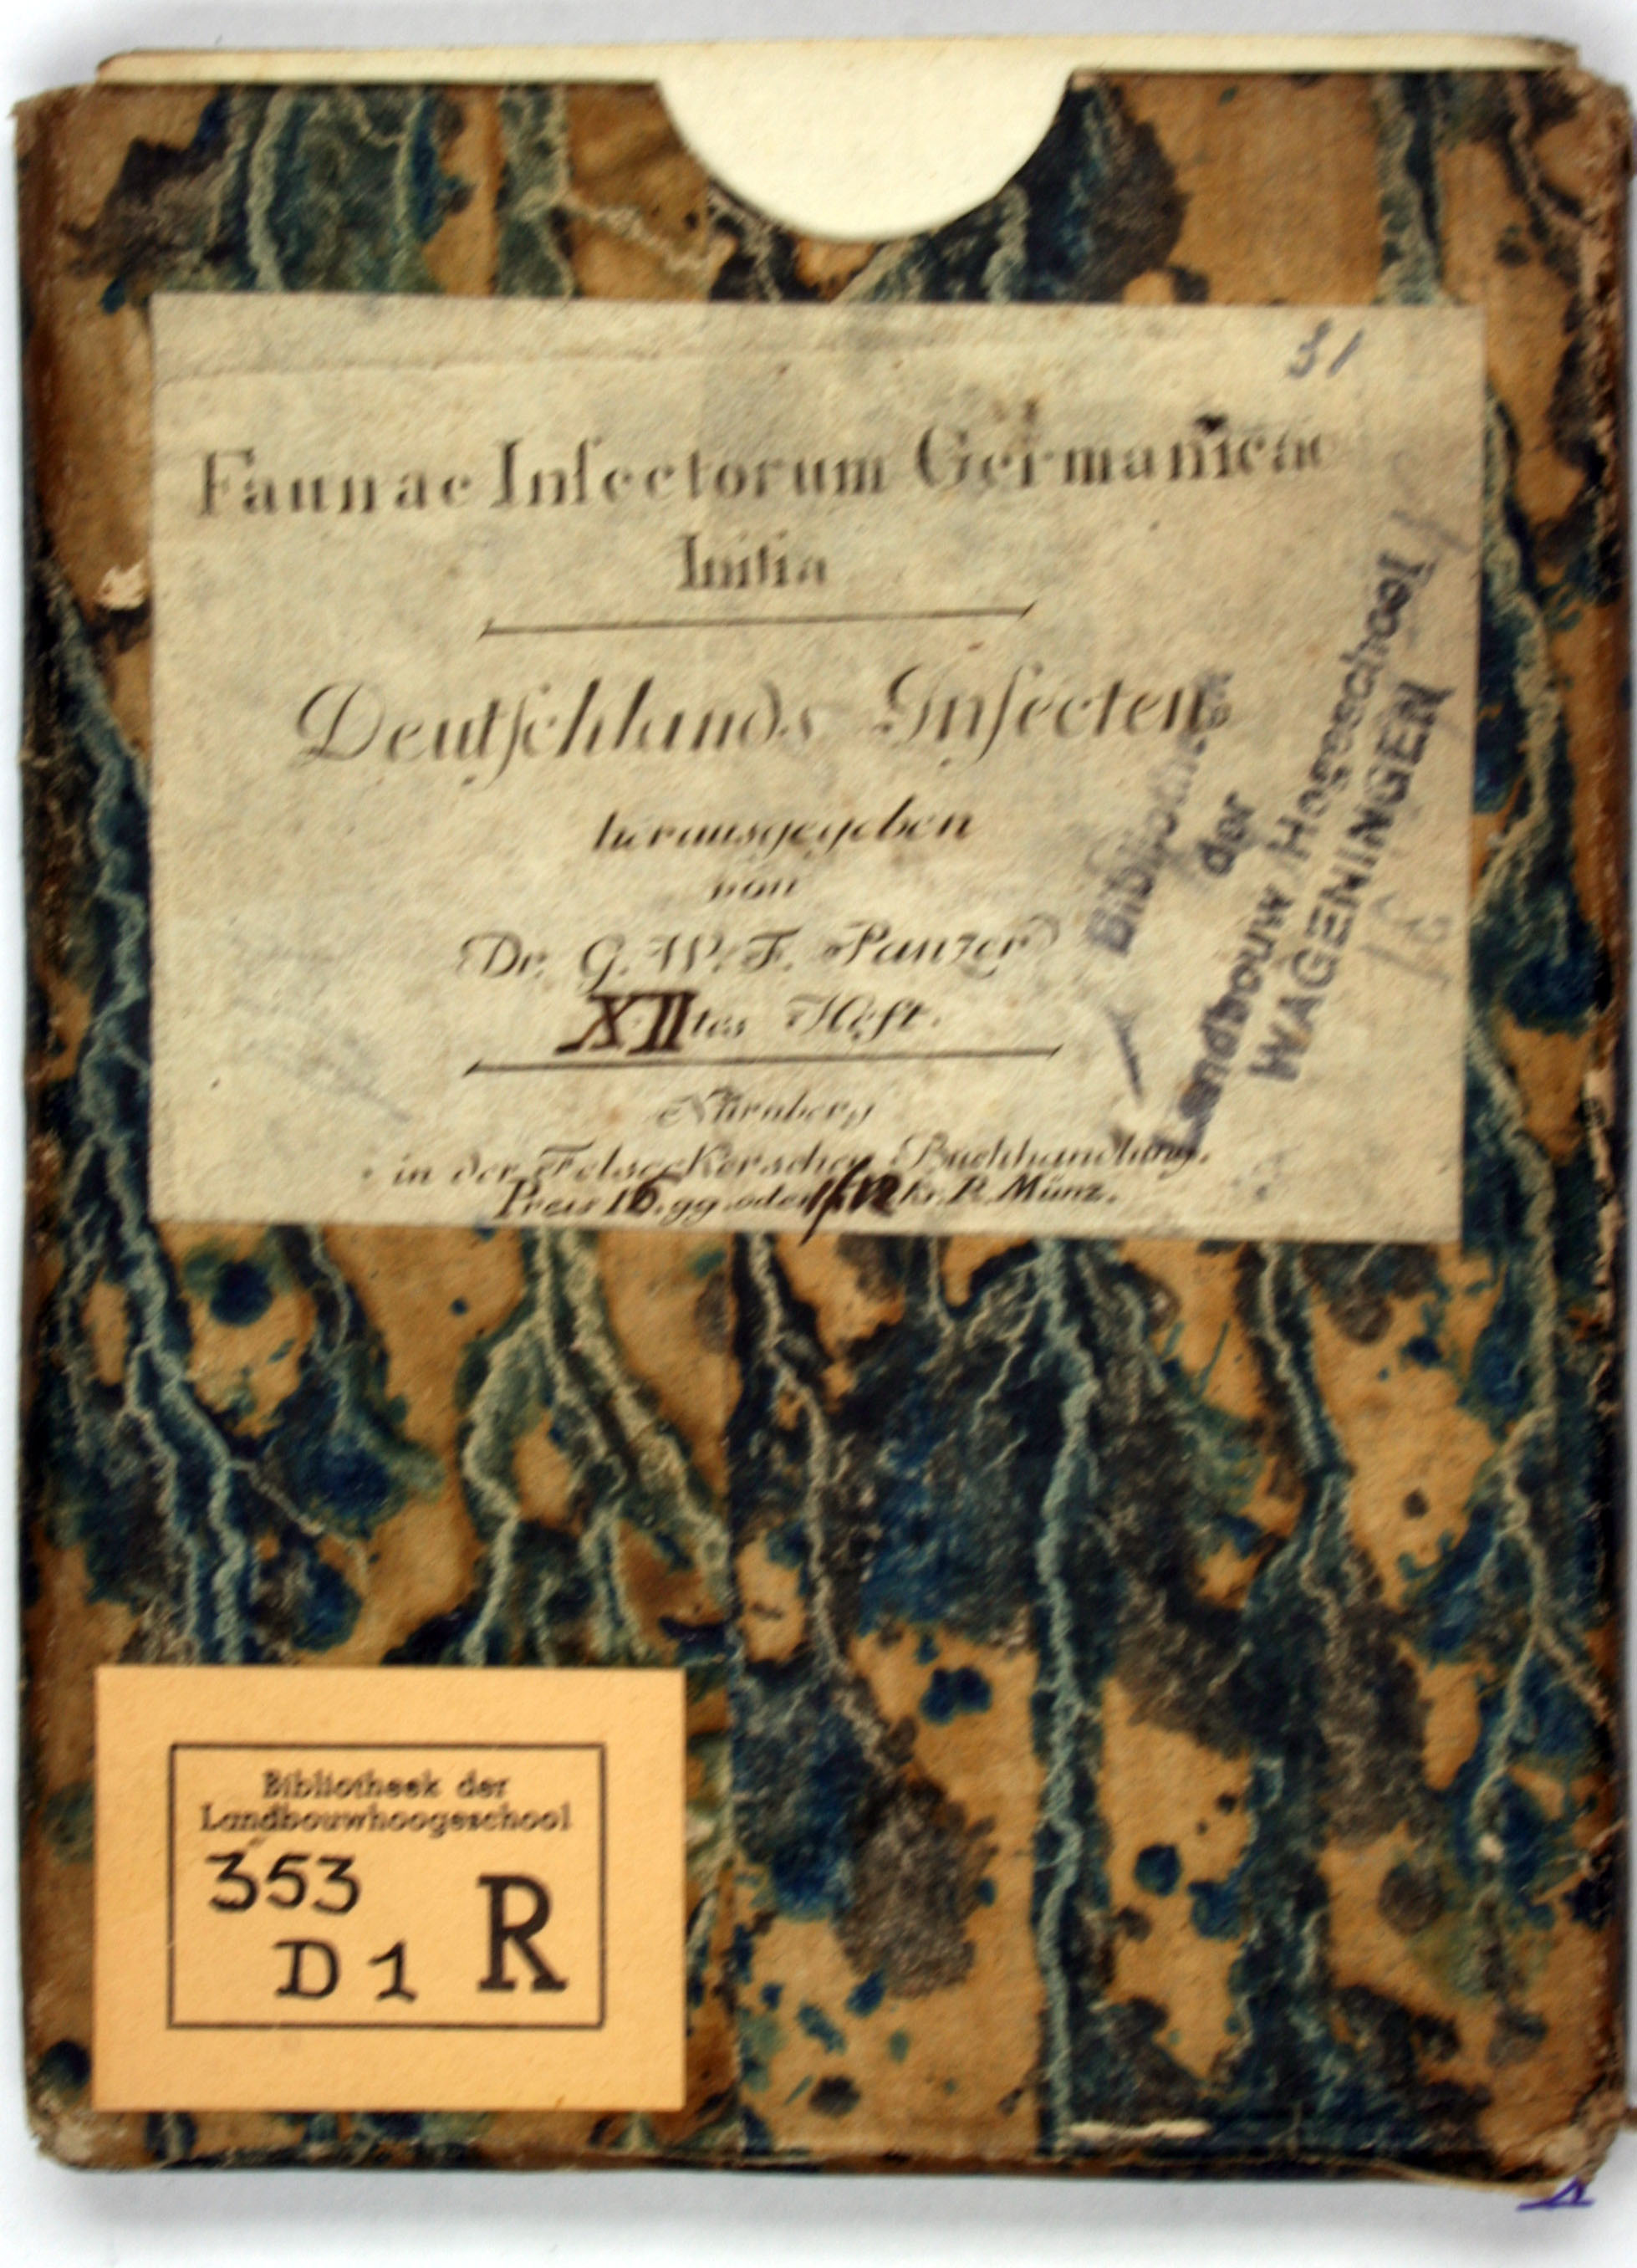 31
Faunae Insectorum Germanicae
Initia
Deutschlands Insecten
herausgegeben
von
Dr. G. W. F. Panzer
XIItes Heft.
Nürnberg
in der Felseckerschen Buchhandlung.
Preis 16. gg. oder 1 f 12 kr. R. Münz.
Bibliotheek
der
Landbouw Hogeschool
WAGENINGEN
Bibliotheek der
Landbouwhoogeschool
353
D 1
R